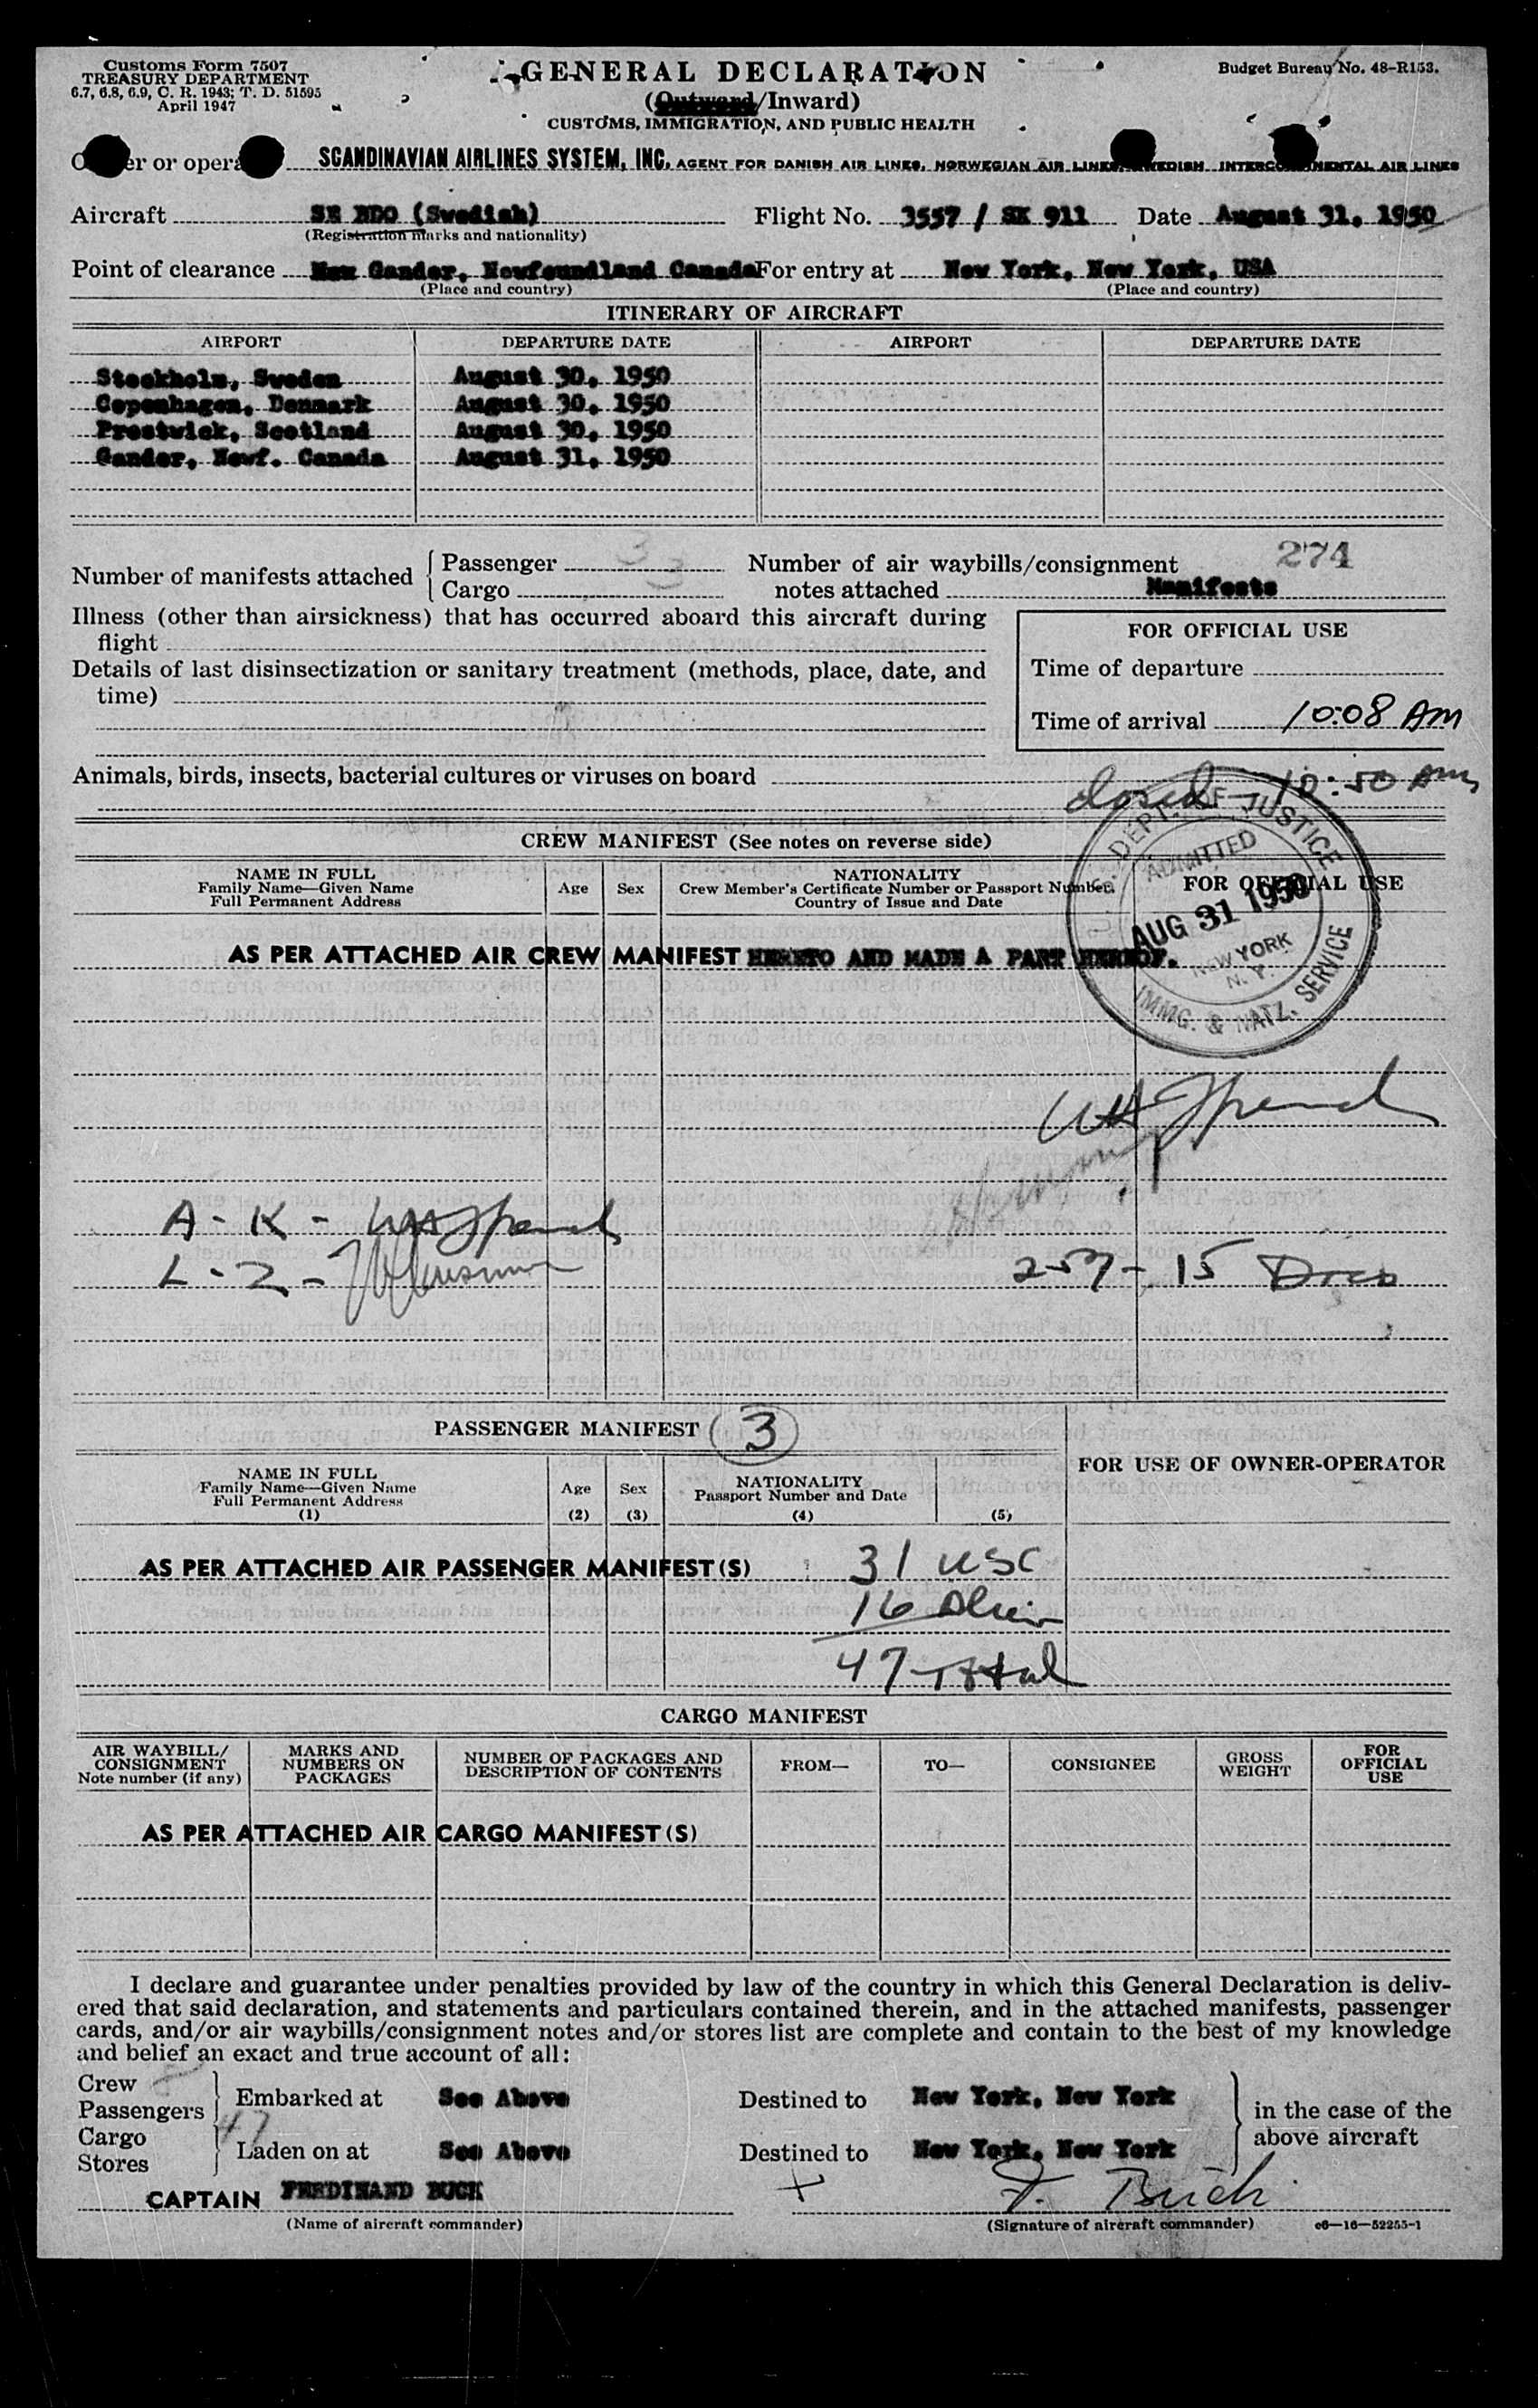 Customs Form 7507
TREASURY DEPARTMENT
6.7, 6.8, 6.9, C. R. 1943; T. D. 51595
April 1947
GENERAL DECLARATION
(Outward/Inward)
CUSTOMS, IMMIGRATION, AND PUBLIC HEALTH
Budget Bureau No. 48-R153.
er or opera SCANDINAVIAN AIRLINES SYSTEM, INC. AGENT FOR DANISH AIR LINES, NORWEGIAN AIR LINES, SWEDISH INTERCONTINENTAL AIR LINES
Aircraft SE BDO (Swedish) Flight No. 3557 / SK 911 Date August 31, 1950
(Registration marks and nationality)
Point of clearance Gander, Newfoundland Canada For entry at New York, New York, USA
(Place and country) (Place and country)
ITINERARY OF AIRCRAFT
AIRPORT DEPARTURE DATE AIRPORT DEPARTURE DATE
Stockholm, Sweden August 30, 1950
Copenhagen, Denmark August 30, 1950
Prestwick, Scotland August 30, 1950
Gander, Newf. Canada August 31, 1950
Number of manifests attached { Passenger 3
Cargo 3
Number of air waybills/consignment 274
notes attached Manifests
Illness (other than airsickness) that has occurred aboard this aircraft during
flight
Details of last disinsectization or sanitary treatment (methods, place, date, and
time)
FOR OFFICIAL USE
Time of departure
Time of arrival 10:08 AM
Animals, birds, insects, bacterial cultures or viruses on board
closed 10:50 Am
CREW MANIFEST (See notes on reverse side)
NAME IN FULL
Family Name—Given Name
Full Permanent Address
Age
Sex
NATIONALITY
Crew Member's Certificate Number or Passport Number.
Country of Issue and Date
FOR OFFICIAL USE
U. S. DEPT. OF JUSTICE
ADMITTED
AUG 31 1950
NEW YORK
N. Y.
IMMG. & NATZ. SERVICE
AS PER ATTACHED AIR CREW MANIFEST HERETO AND MADE A PART HEREOF.
A - K -
L - Z -
257 - 15
PASSENGER MANIFEST 3
NAME IN FULL
Family Name—Given Name
Full Permanent Address
(1)
Age
(2)
Sex
(3)
NATIONALITY
Passport Number and Date
(4) (5)
FOR USE OF OWNER-OPERATOR
AS PER ATTACHED AIR PASSENGER MANIFEST(S) 31 USC
16 Alien
47 Total
CARGO MANIFEST
AIR WAYBILL/
CONSIGNMENT
Note number (if any)
MARKS AND
NUMBERS ON
PACKAGES
NUMBER OF PACKAGES AND
DESCRIPTION OF CONTENTS
FROM—
TO—
CONSIGNEE
GROSS
WEIGHT
FOR
OFFICIAL
USE
AS PER ATTACHED AIR CARGO MANIFEST(S)
I declare and guarantee under penalties provided by law of the country in which this General Declaration is deliv-
ered that said declaration, and statements and particulars contained therein, and in the attached manifests, passenger
cards, and/or air waybills/consignment notes and/or stores list are complete and contain to the best of my knowledge
and belief an exact and true account of all:
Crew
Passengers 47
Cargo
Stores
Embarked at See Above Destined to New York, New York
Laden on at See Above Destined to New York, New York
in the case of the
above aircraft
CAPTAIN FERDINAND BUCK
(Name of aircraft commander)
F. Buck
(Signature of aircraft commander) c6—16—52255-1